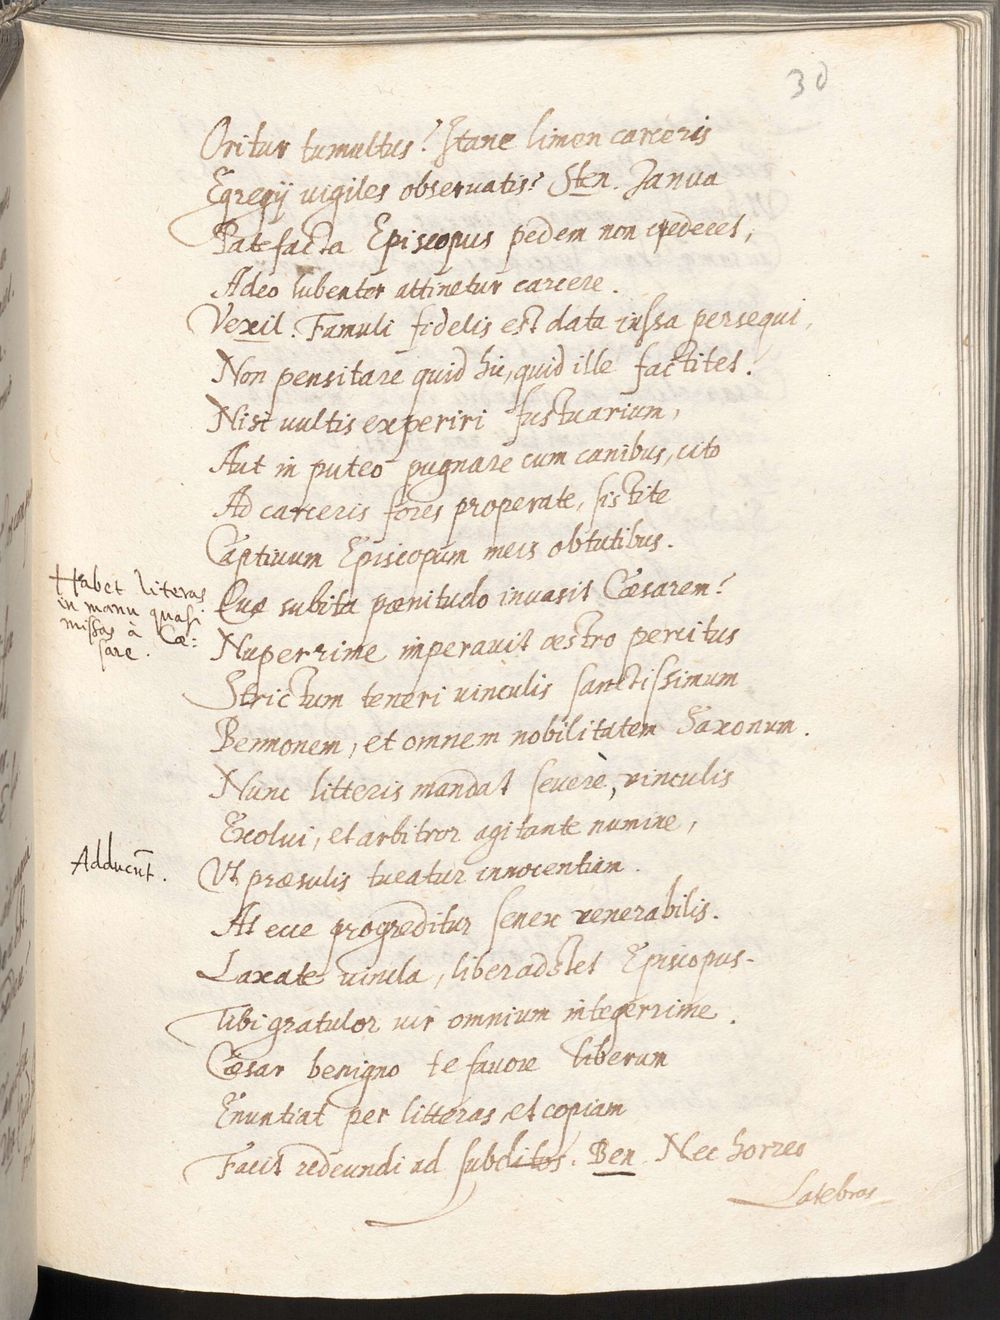 30
Oritur tumultus? Itane limen carceris
Egregij uigiles obseruatis? Sten. Janua
Patefacta Episcopus pedem non cederet,
Adeo lubenter attinetur carcere.
Vexil. Famuli fidelis est data iussa persequi,
Non pensitare quid hic, quid ille factitet.
Nisi uultis experiri fustuarium,
Aut in puteo pugnare cum canibus, cito
Ad carceris fores properate, sistite
Captiuum Episcopum meis obtutibus.
Habet literas
in manu quasi
missas à Cæ:
sare.
Quæ subita pœnitudo inuasit Cæsarem?
Nuperrime imperauit œstro percitus
Strictum teneri uinculis sanctissimum
Bennonem, et omnem nobilitatem Saxonum.
Nunc litteris mandat seuerè, vinculis
Exolui, et arbitror agitante numine,
Adducūt.
Vt præsulis tueatur innocentiam.
At ecce progreditur senex venerabilis.
Laxate uincla, liber adstet Episcopus.
Tibi gratulor uir omnium integerrime.
Cæsar benigno te fauore liberum
Enuntiat per litteras et copiam
Facit redeundi ad subditos. Ben. Nec horreo
Latebras